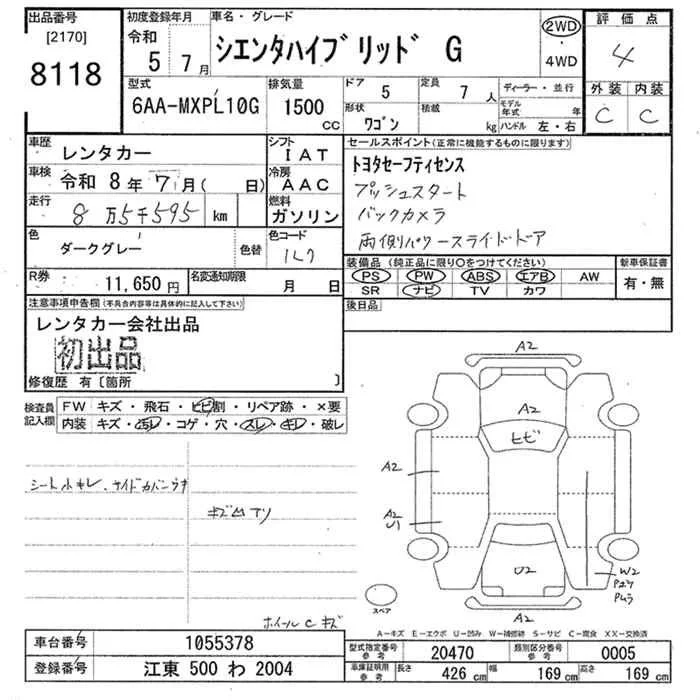 出品番号 初度登録年月 車名・グレード 評価点
[2170] 令和 5 7月 シエンタハイブリッド G 2WD・4WD 4
8118 型式 排気量 ドア 5 定員 7人 ディーラー・並行 外装 内装
6AA-MXPL10G 1500 CC 形状 ワゴン 積載 kg モデル年式 年 ハンドル 左・右 C C
車歴 レンタカー シフト IAT セールスポイント(正常に機能するものに限ります)
車検 令和 8年 7月( 日) 冷房 AAC トヨタセーフティセンス
走行 8万5千595 km 燃料 ガソリン プッシュスタート
バックカメラ
色 ダークグレー 色替 色コード 1L7 両側パワースライドドア
R券 11,650円 名変通知期限 月 日 装備品(純正品に限り○をつけてください) 新車保証書
PS PW ABS エアB AW 有・無
SR ナビ TV カワ
注意事項申告欄(不具合内容等は具体的に記入して下さい) 後日品
レンタカー会社出品
初出品
修復歴 有〔箇所 〕
検査員記入欄 FW キズ・飛石・ヒビ割・リペア跡・×要
内装 キズ・汚レ・コゲ・穴・スレ・キレ・破レ
A2
A2
ヒビ
A2
A2
U1
U2
W2
A2
スペア
キズ凹アリ
ホイールC キズ
A-キズ E-エクボ U-凹み W-補修跡 S-サビ C-腐食 XX-交換済
車台番号 1055378 型式指定番号 参考 20470 類別区分番号 参考 0005
登録番号 江東 500 わ 2004 車庫証明用 参考 長さ 426 cm 幅 169 cm 高さ 169 cm